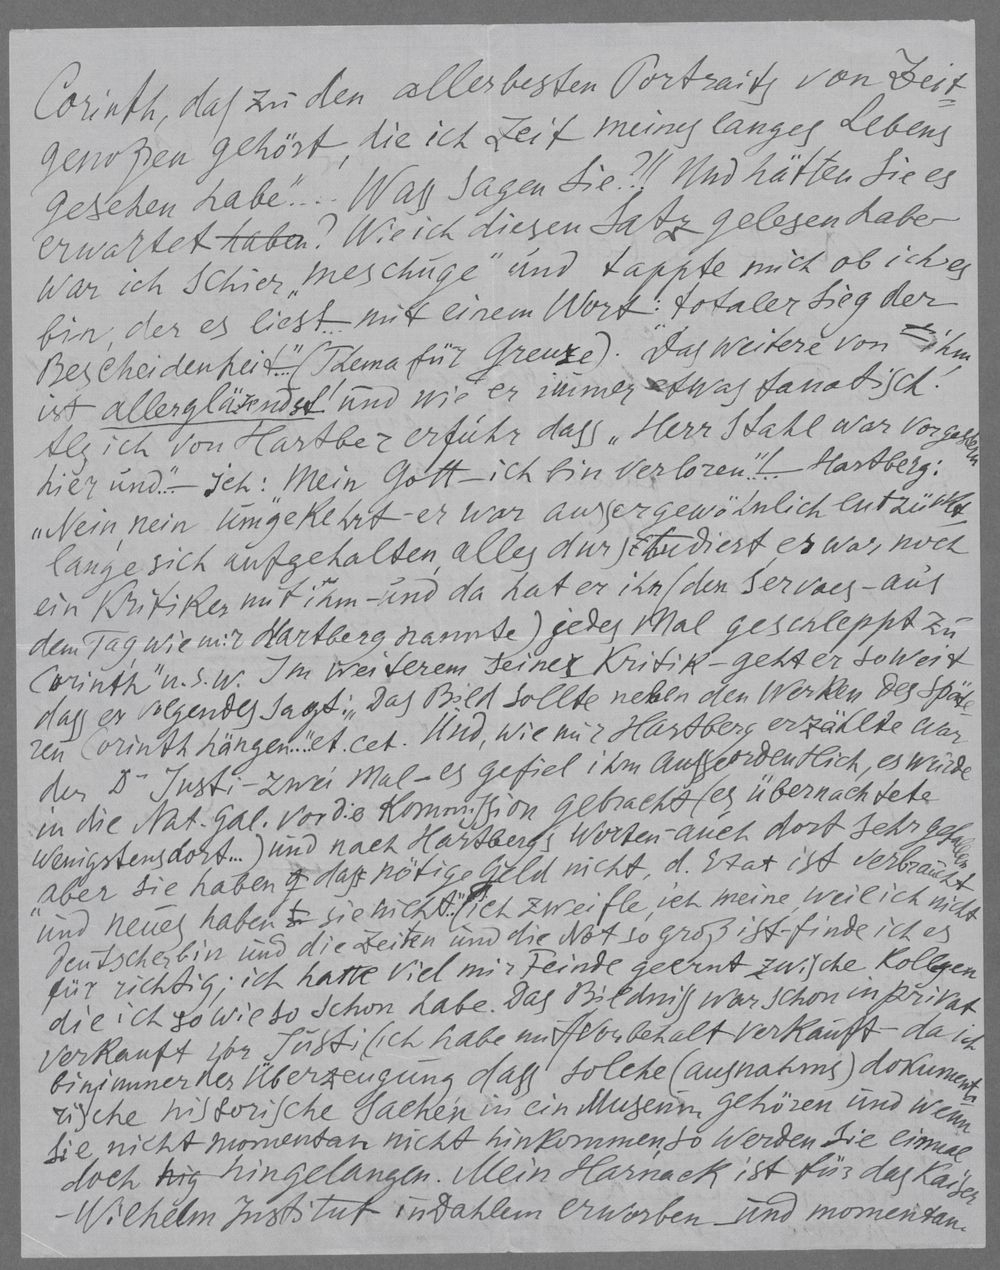 Corinth, das zu den allerbesten Portraits von Zeit=
genoßen gehört, die ich Zeit meines langes Lebens
gesehen habe".... Was sagen Sie?!! Und hätten Sie es
erwartet haben? Wie ich diesen Satz gelesen habe –
war ich schier „meschuge" und tappte mich ob ich es
bin, der es liest... mit einem Wort: totaler Sieg der
Bescheidenheit"...(Thema für Greuze). Das weitere von ihm,
ist allerglänzendst! und wie er immer etwas fanatisch!
Als ich von Hartberg erfuhr dass „Herr Stahl war vorgestern
hier und"... – Ich: "Mein Gott – ich bin verloren"!.. – Hartberg:
„Nein, nein umgekehrt – er war aussergewöhnlich entzückt,
lange sich aufgehalten, alles durstudiert, es war noch
ein Kritiker mit ihm – und da hat er ihn (den Servaes – aus
dem Tag, wie mir Hartberg nannte) jedes Mal geschleppt zu
Corinth" u.s.w. Im weiterem seiner Kritik – geht er so weit
dass er volgendes sagt: „Das Bild sollte neben den Werken des spät-
ren Corinth hängen..." et. cet. Und, wie mir Hartberg erzählte war
der Dr Justi – zwei Mal – es gefiel ihm aussordentlich, es wurde
in die Nat. Gal. vor die Kommission gebracht (es übernachtete
wenigstens dort...) und nach Hartbergs Worten – auch dort sehr gefallen
"aber sie haben das nötige Geld nicht, d. Etat ist verbraucht
und neues haben sie nicht." Ich zweifle, ich meine, weil ich nicht
Deutscher bin und die Zeiten und die Not so groß ist – finde ich es
für richtig; ich hatte viel mir Feinde geernt zwische Kollegen
die ich sowieso schon habe. Das Bildniss war schon in privat
verkauft vor Justi (ich habe mit Vorbehalt verkauft – da ich
bin immer der Überzeugung dass solche (ausnahms) dokumenta
rische historische Sachen in ein Museum gehören und wenn
sie nicht momentan nicht hinkommen, so werden sie einmal
doch hingelangen. Mein Harnack ist für das Kaiser
– Wilhelm Institut in Dahlem erworben – und momentan